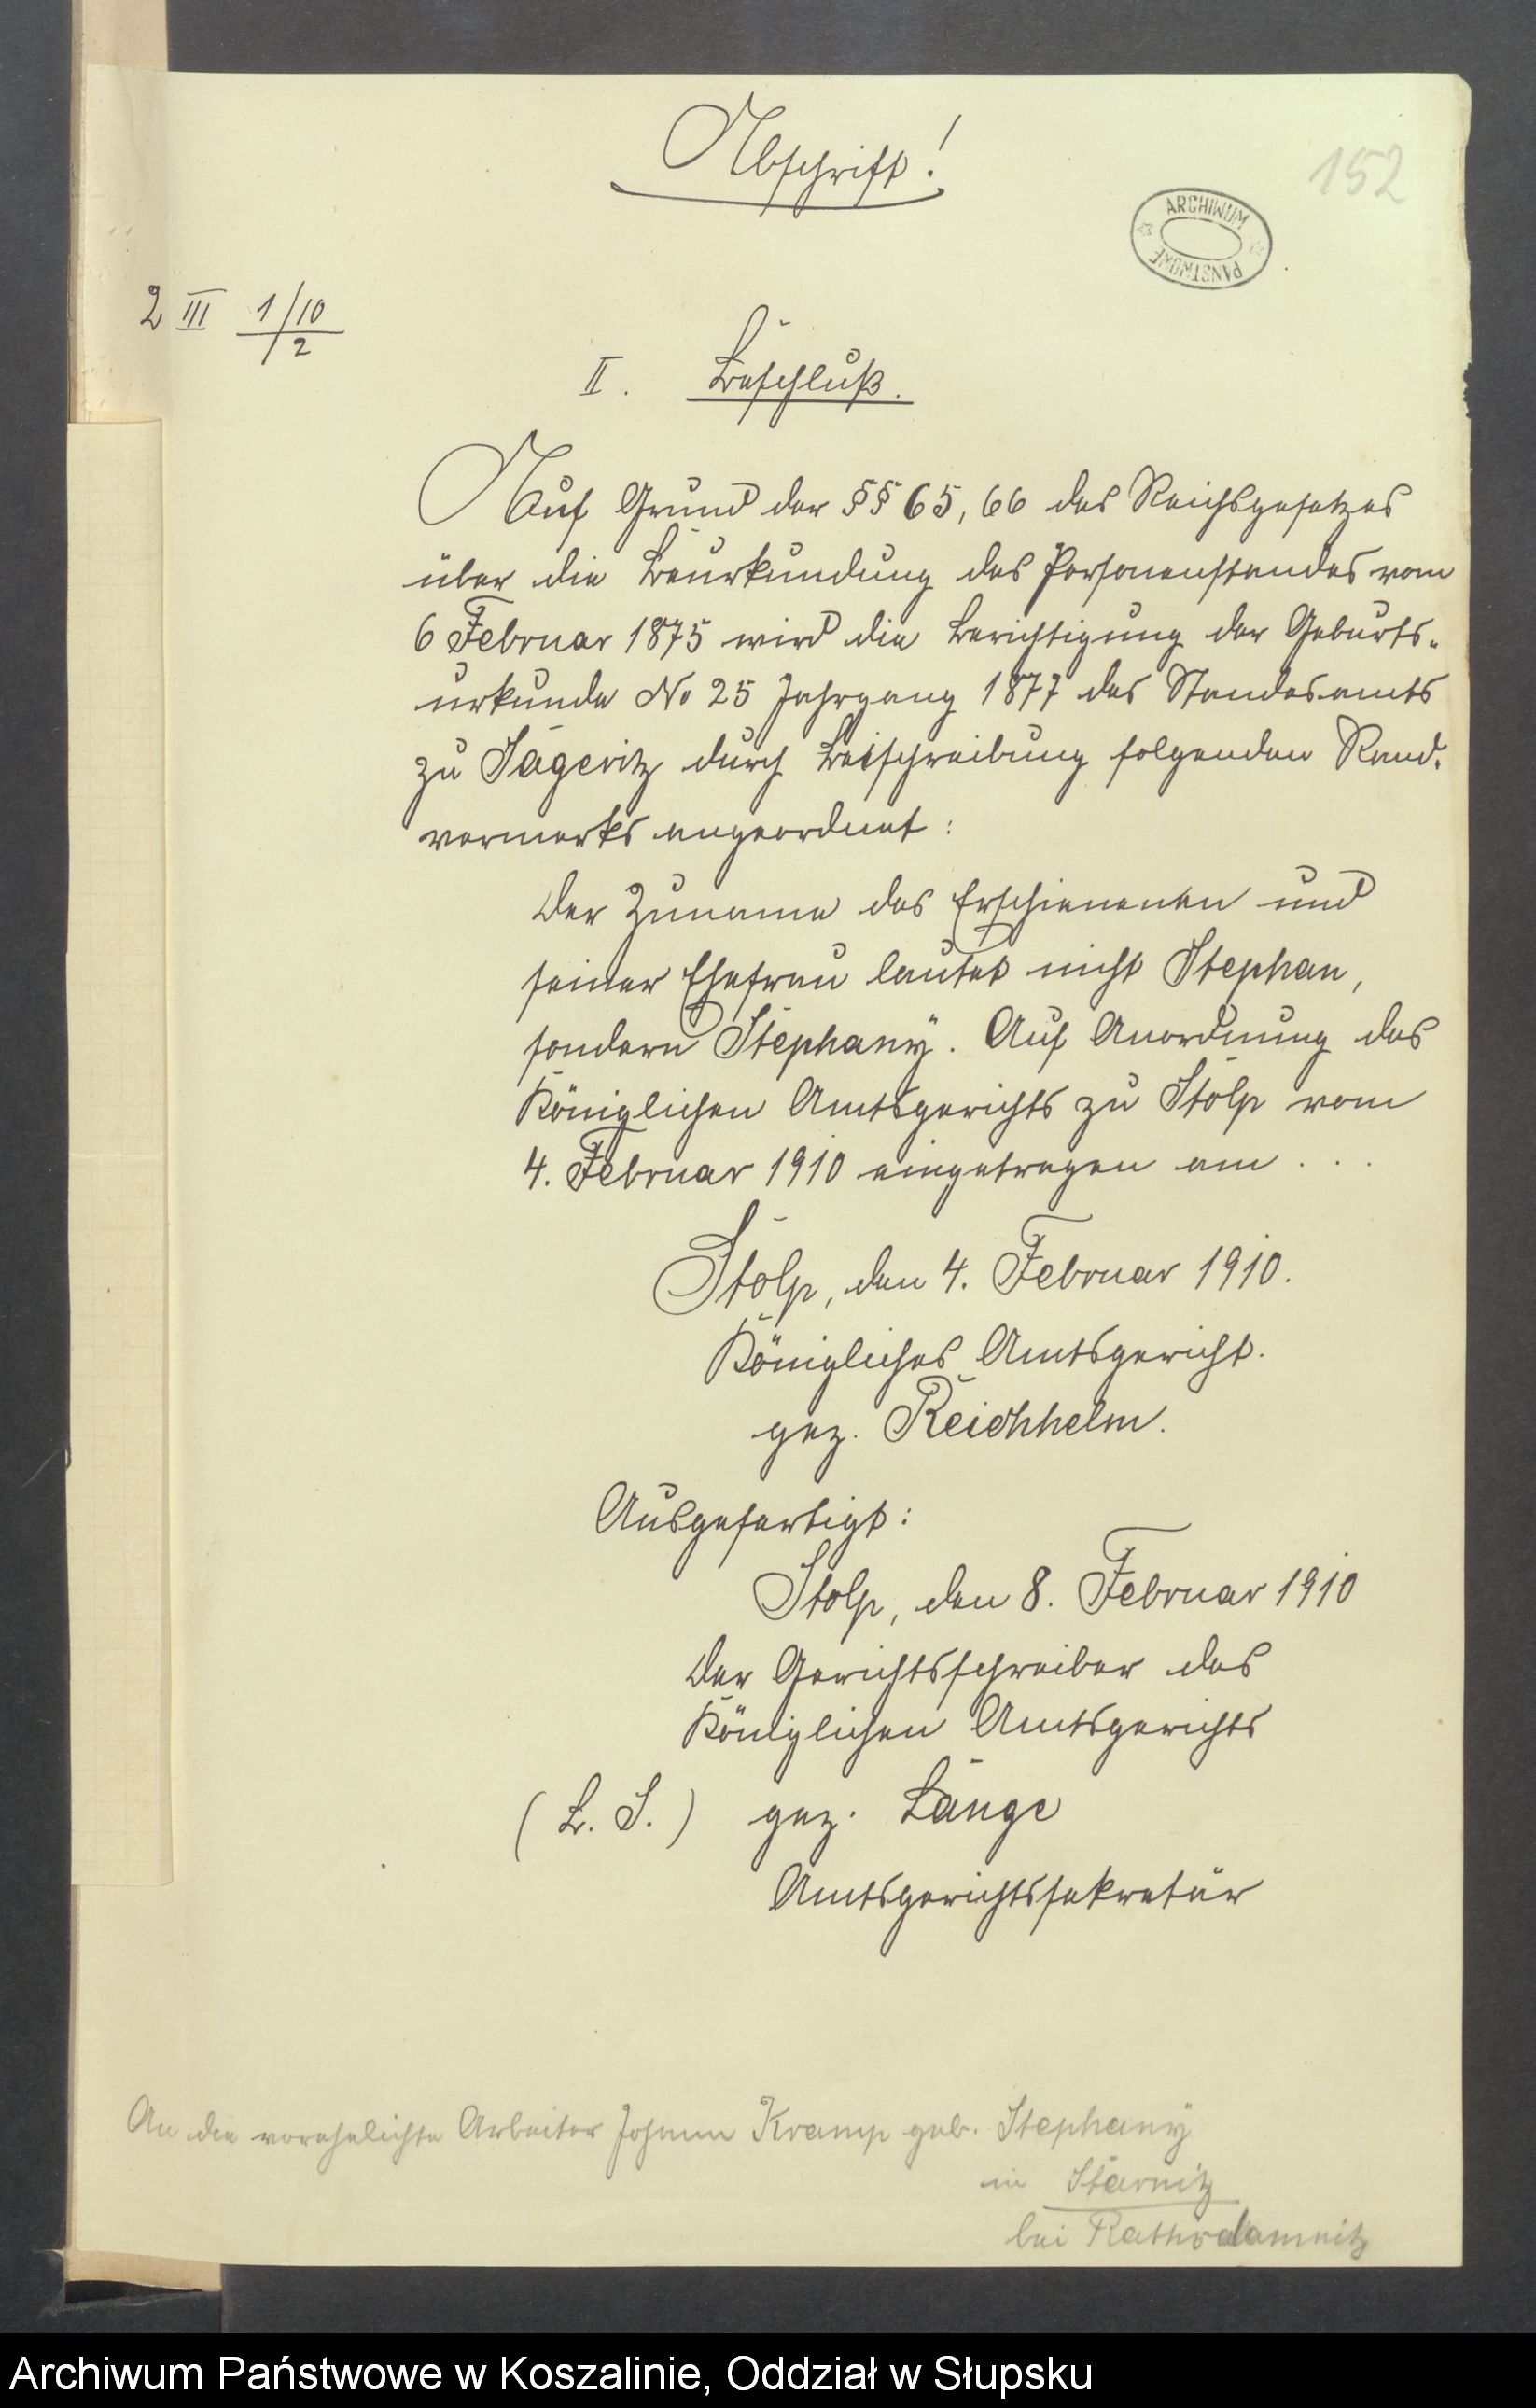 Abschrift!
152
ARCHIWUM PAŃSTWOWE
2 III 1/10
2
II. Beschluß.
Auf Grund der §§ 65, 66 des Reichsgesetzes
über die Beurkundung des Personenstandes vom
6 Februar 1875 wird die Berichtigung der Geburts-
urkunde No 25 Jahrgang 1877 des Standesamts
zu Jageritz durch Beischreibung folgenden Rand-
vermerks angeordnet:
Der Zuname des Erschienenen und
seiner Ehefrau lautet nicht Stephan,
sondern Stephany. Auf Anordnung des
Königlichen Amtsgerichts zu Stolp vom
4. Februar 1910 eingetragen am . . .
Stolp, den 4. Februar 1910.
Königliches Amtsgericht.
gez. Reichhelm.
Ausgefertigt:
Stolp, den 8. Februar 1910
Der Gerichtsschreiber des
Königlichen Amtsgerichts
(L. S.) gez. Lange
Amtsgerichtssekretär
An die verehelichte Arbeiter Johann Kramp geb. Stephany
in Starnitz
bei Rathsdamnitz
Archiwum Państwowe w Koszalinie, Oddział w Słupsku